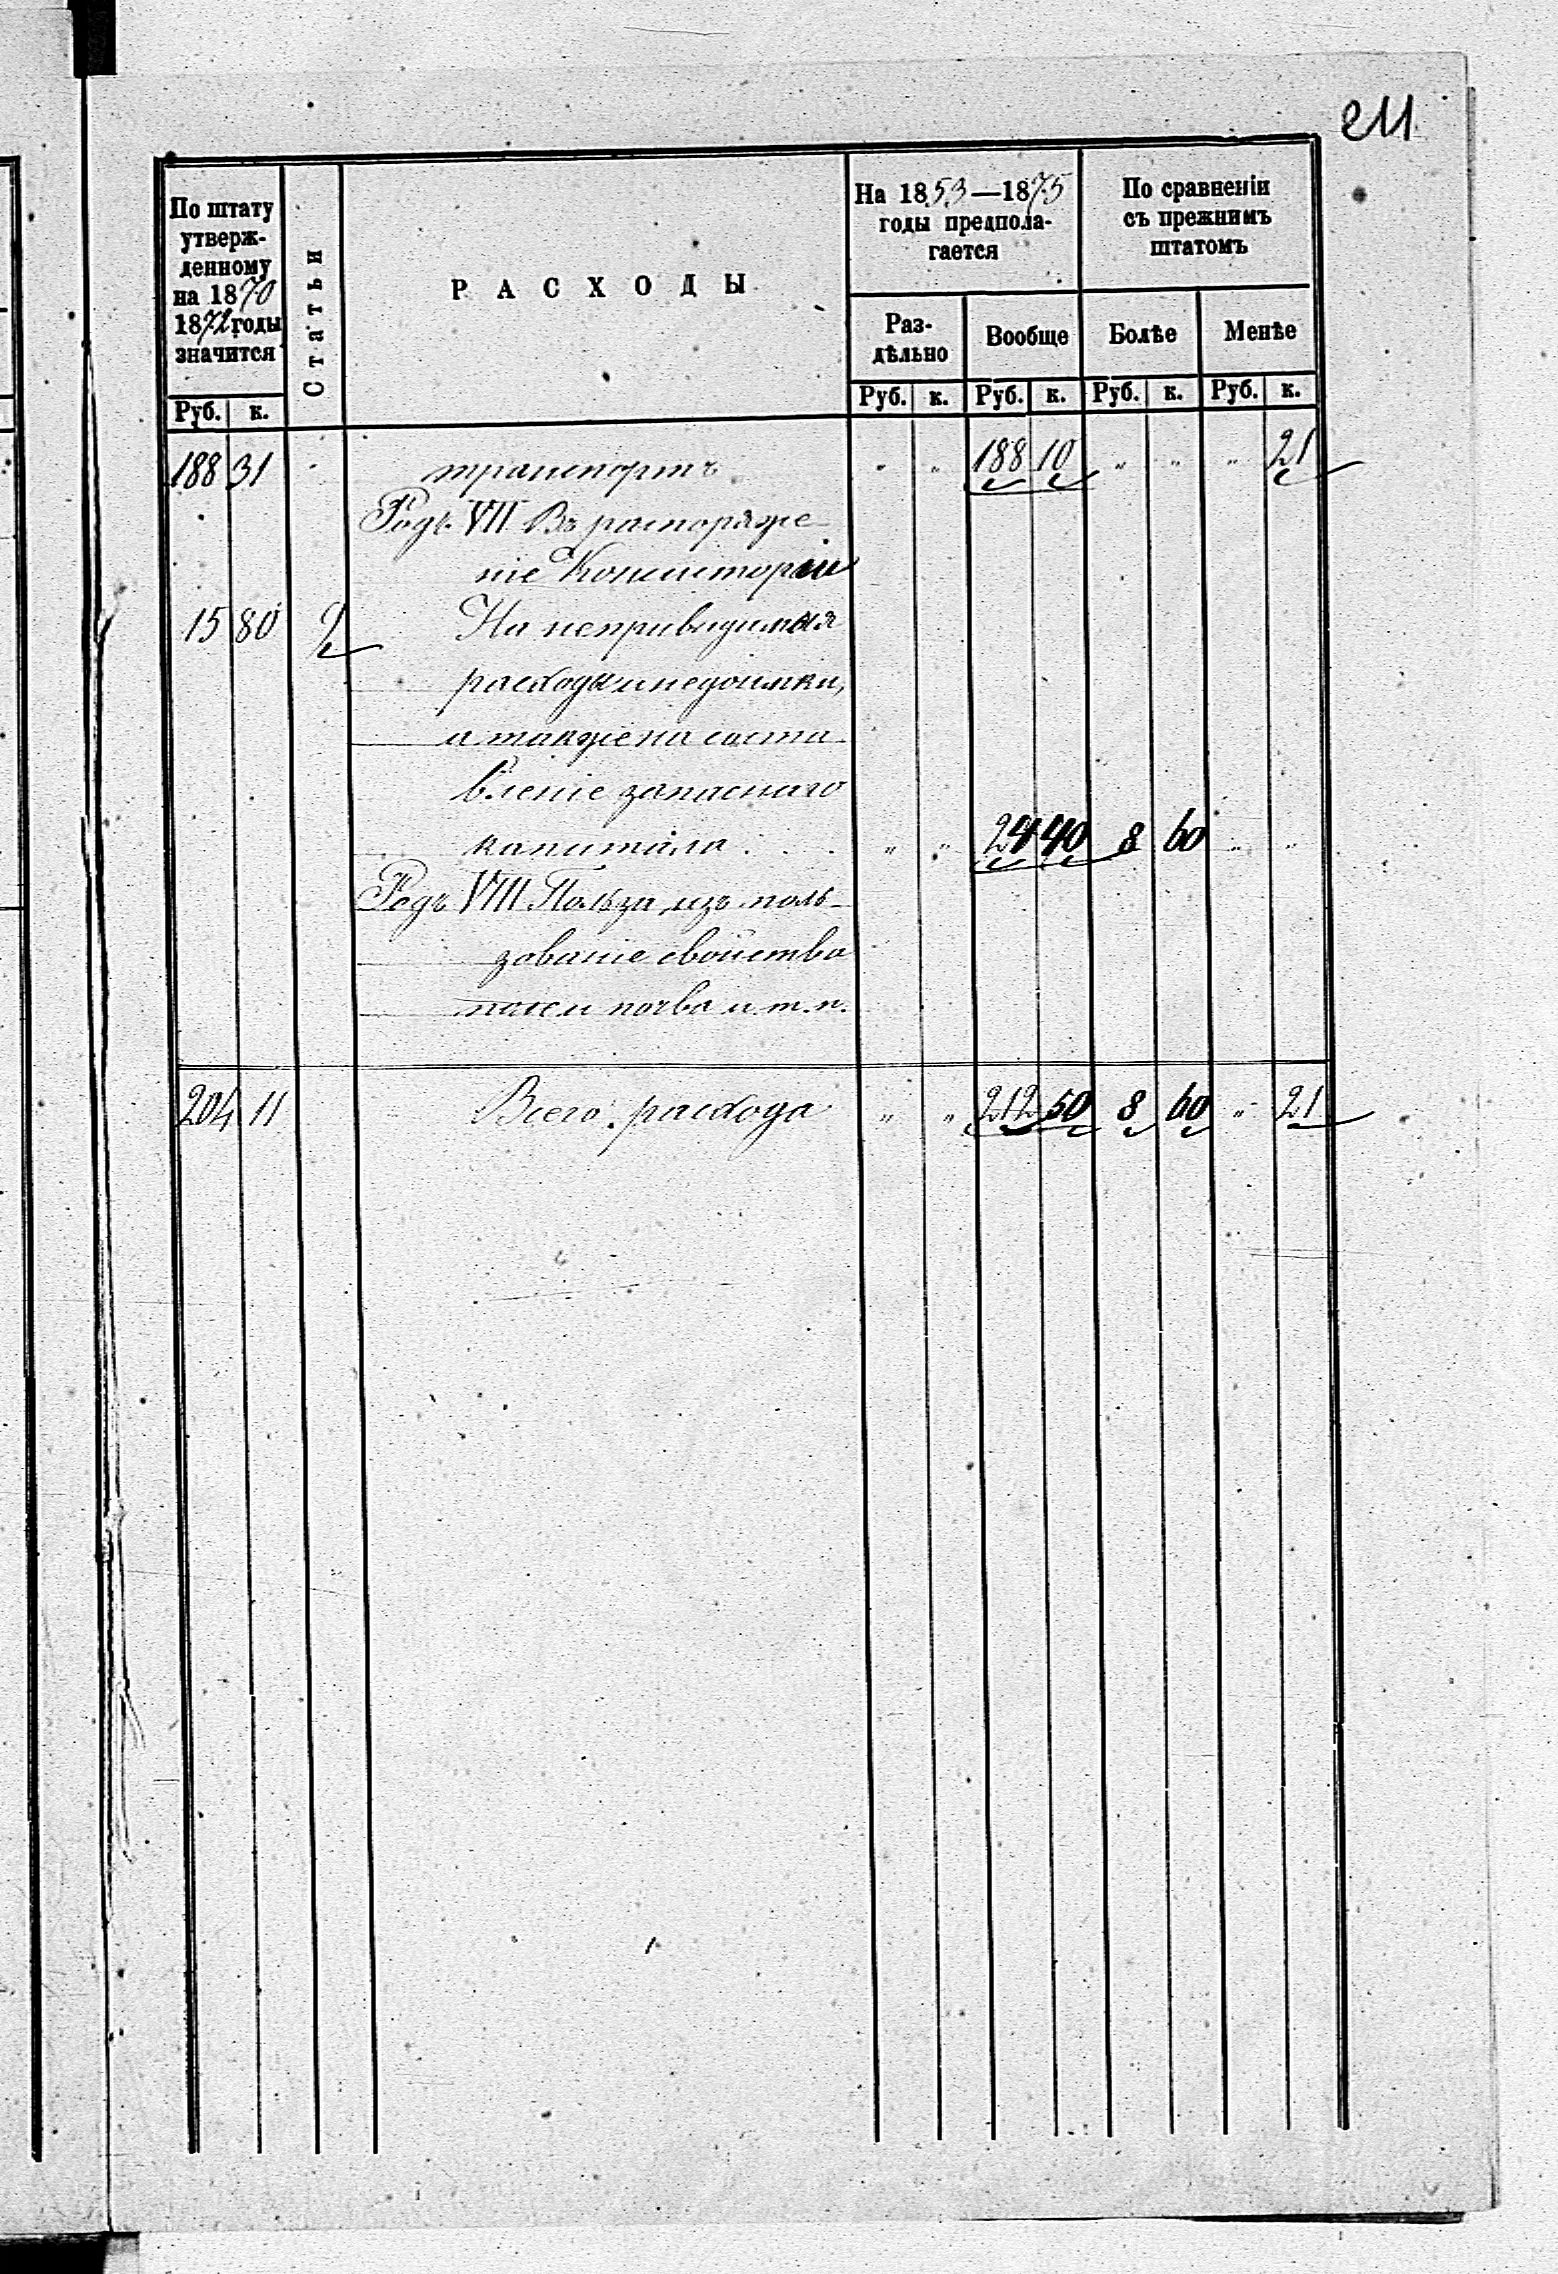 211
По штату
утверж-
денному
на 1870
1872 годы
значится
Статьи
РАСХОДЫ
На 1853—1875
годы предпола-
гается
По сравненіи
съ прежнимъ
штатомъ
Раз-
дѣльно
Вообще
Болѣе
Менѣе
Руб. к. Руб. к. Руб. к. Руб. к. Руб. к.
188 31 транспортъ " " 188 10 " " " 21
Родъ VII Въ распоряже-
ніе Консисторіи
15 80 На непривидимыя
расходы и недоимки,
а также на соста-
вленіе запаснаго
капитала . . . " " 24 40 8 60 " "
Родъ VIII Польза изъ поль-
зованіе свойства
почва и т. п.
204 11 Всего расхода " " 212 50 8 60 " 21